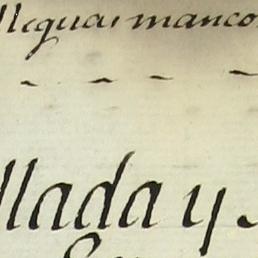 lleguas manco
llada y